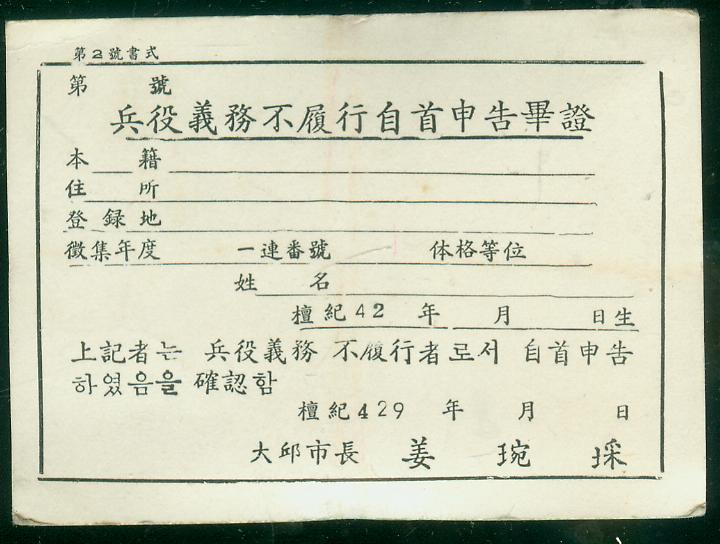 第2號書式
第 號
兵役義務不履行自首申告畢證
本 籍
住 所
登 録 地
徵集年度 一連番號 体格等位
姓 名
檀紀42 年 月 日生
上記者는 兵役義務 不履行者로서 自首申告
하였음을 確認함
檀紀429 年 月 日
大邱市長 姜 琬 埰